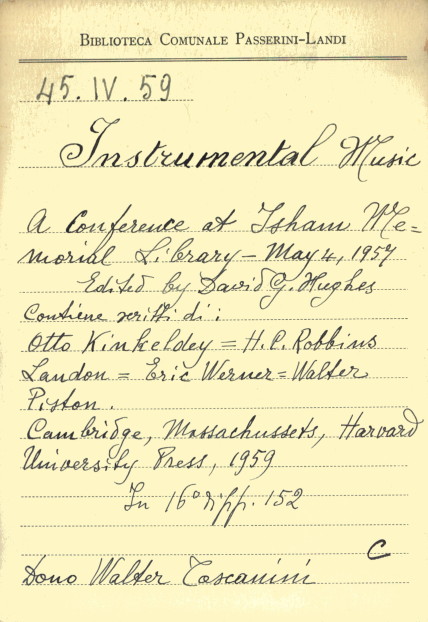 BIBLIOTECA COMUNALE PASSERINI-LANDI
45.IV.59
Instrumental Music
A Conference at Isham Me=
morial Library - May 4, 1957
Edited by David G. Hughes
Contiene scritti di:
Otto Kinkeldey = H.C. Robbins
Landon = Eric Werner = Walter
Piston.
Cambridge, Massachussets, Harvard
University Press, 1959
In 16° di pp. 152
C
Dono Walter Toscanini